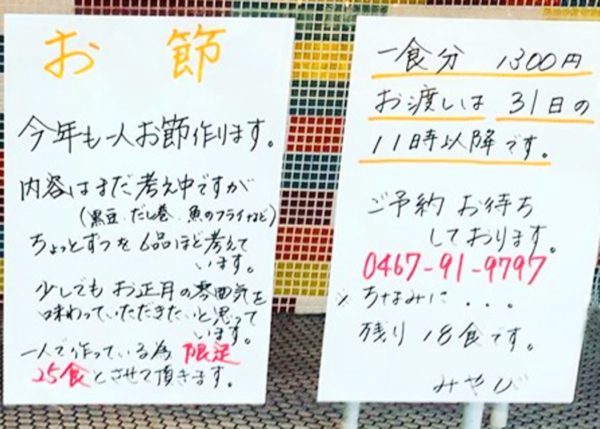 お節
今年も一人お節作ります。
内容はまだ考え中ですが
(黒豆.だし巻.魚のフライなど)
ちょっとずつを6品ほど考えて
います。
少しでもお正月の雰囲気を
味わっていただきたいと思って
います。
一人で作っている為限定
25食とさせて頂きます。
一食分 1300円
お渡しは31日の
11時以降です。
ご予約お待ち
しております。
0467-91-9797
※ちなみに...
残り18食です。
みやび